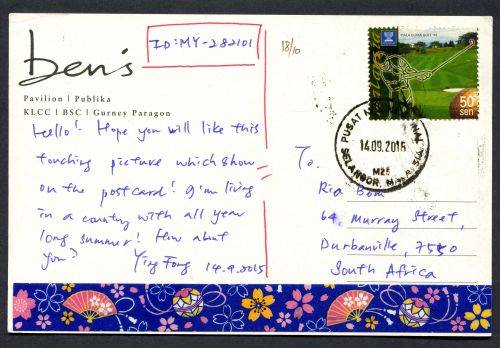 ben's
Pavilion | Publika
KLCC | BSC | Gurney Paragon
ID: MY-282101
18/10
Hello! Hope you will like this
touching picture which show
on the postcard! I'm living
in a country with all year
long summer! How about
you?
Ying Fong 14.9.2015
PIALA DUNIA GOLF '99
50
sen
PUSAT
14.09.2015
M25
SELANGOR, MALAYSIA
To.
Ria Bom
64, Murray Street,
Durbanville, 7550
South Africa